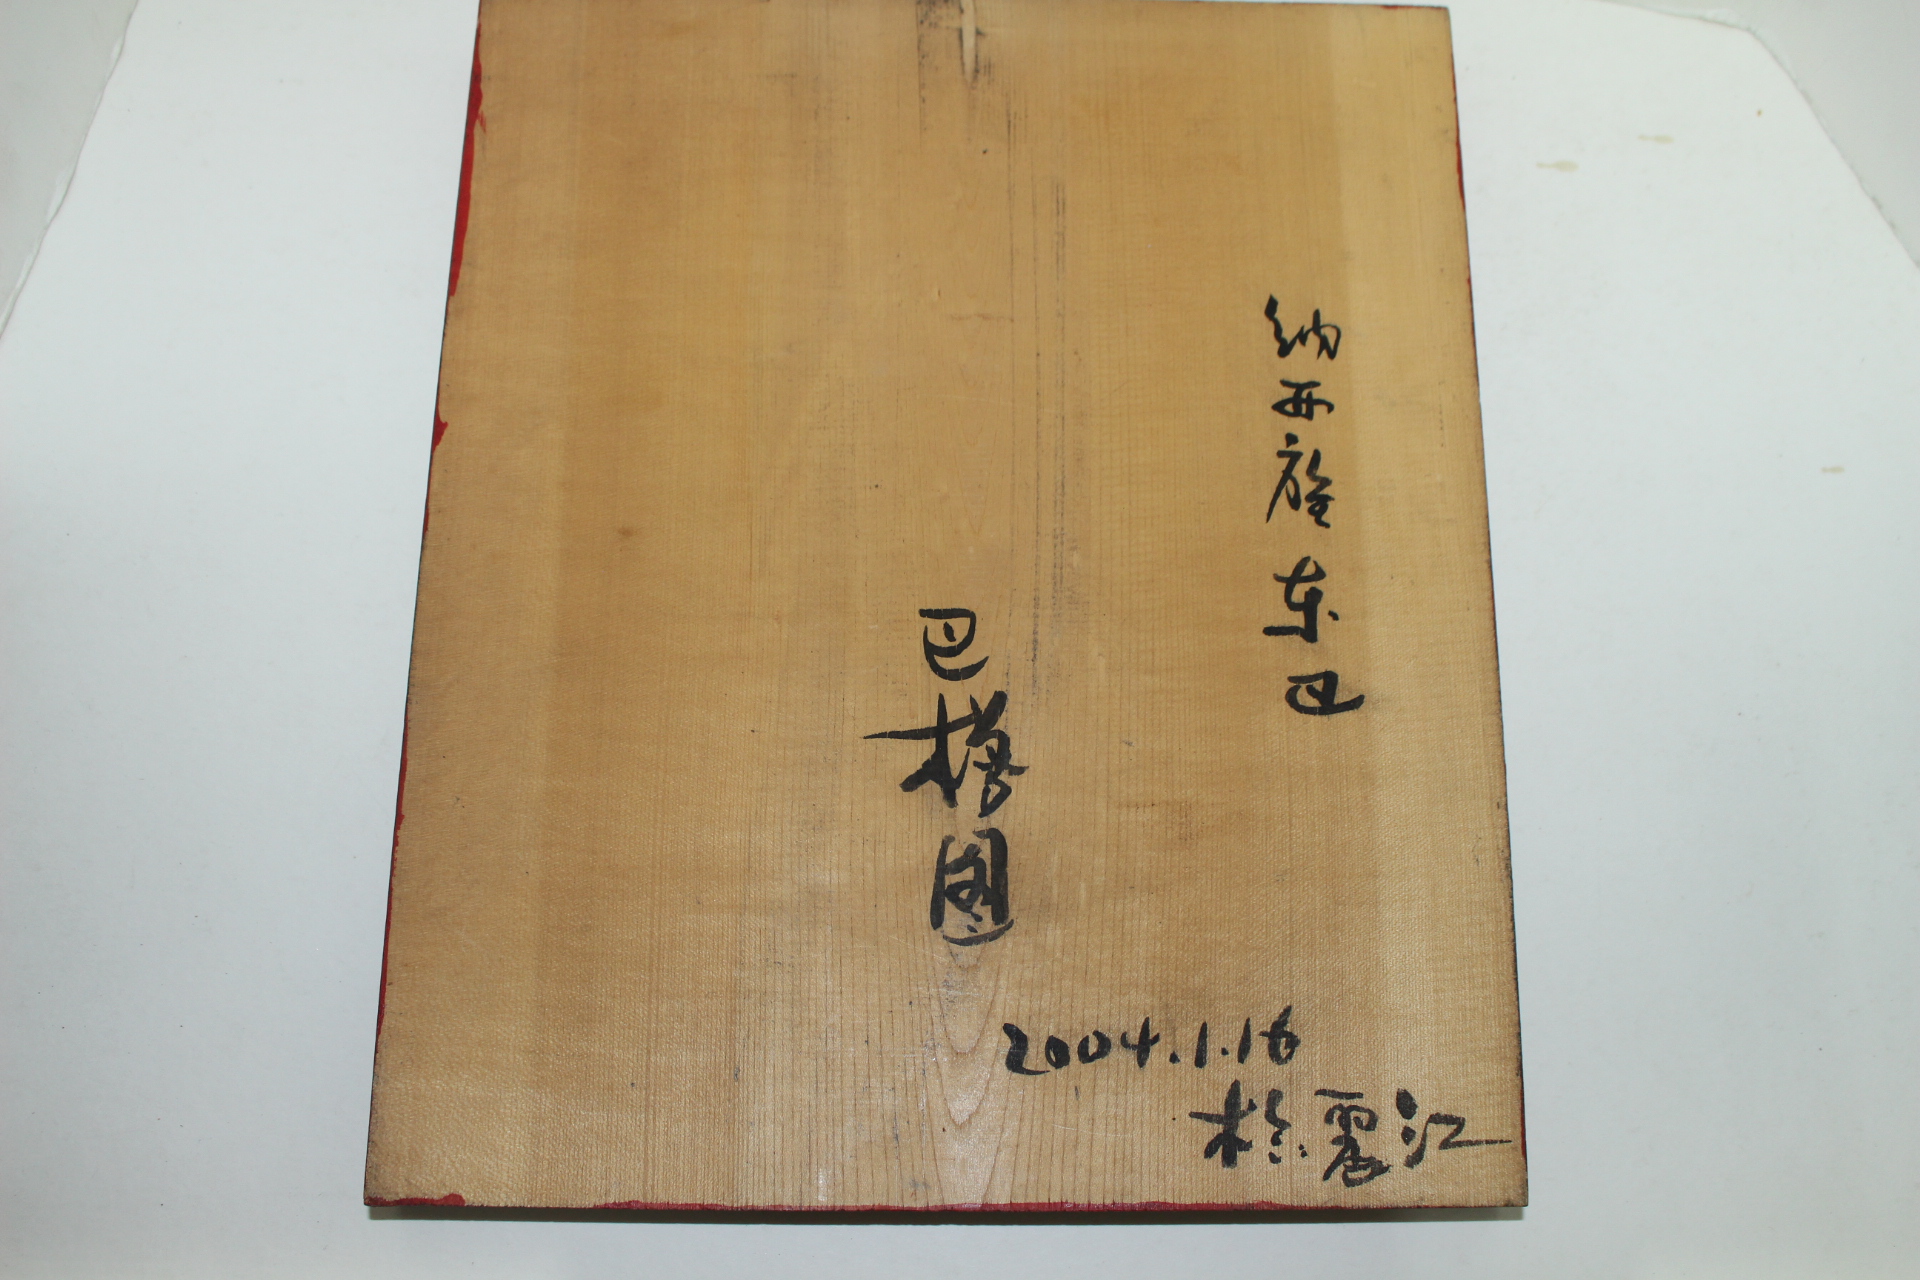 纳西族东巴
巴格图
2004.1.16
於丽江